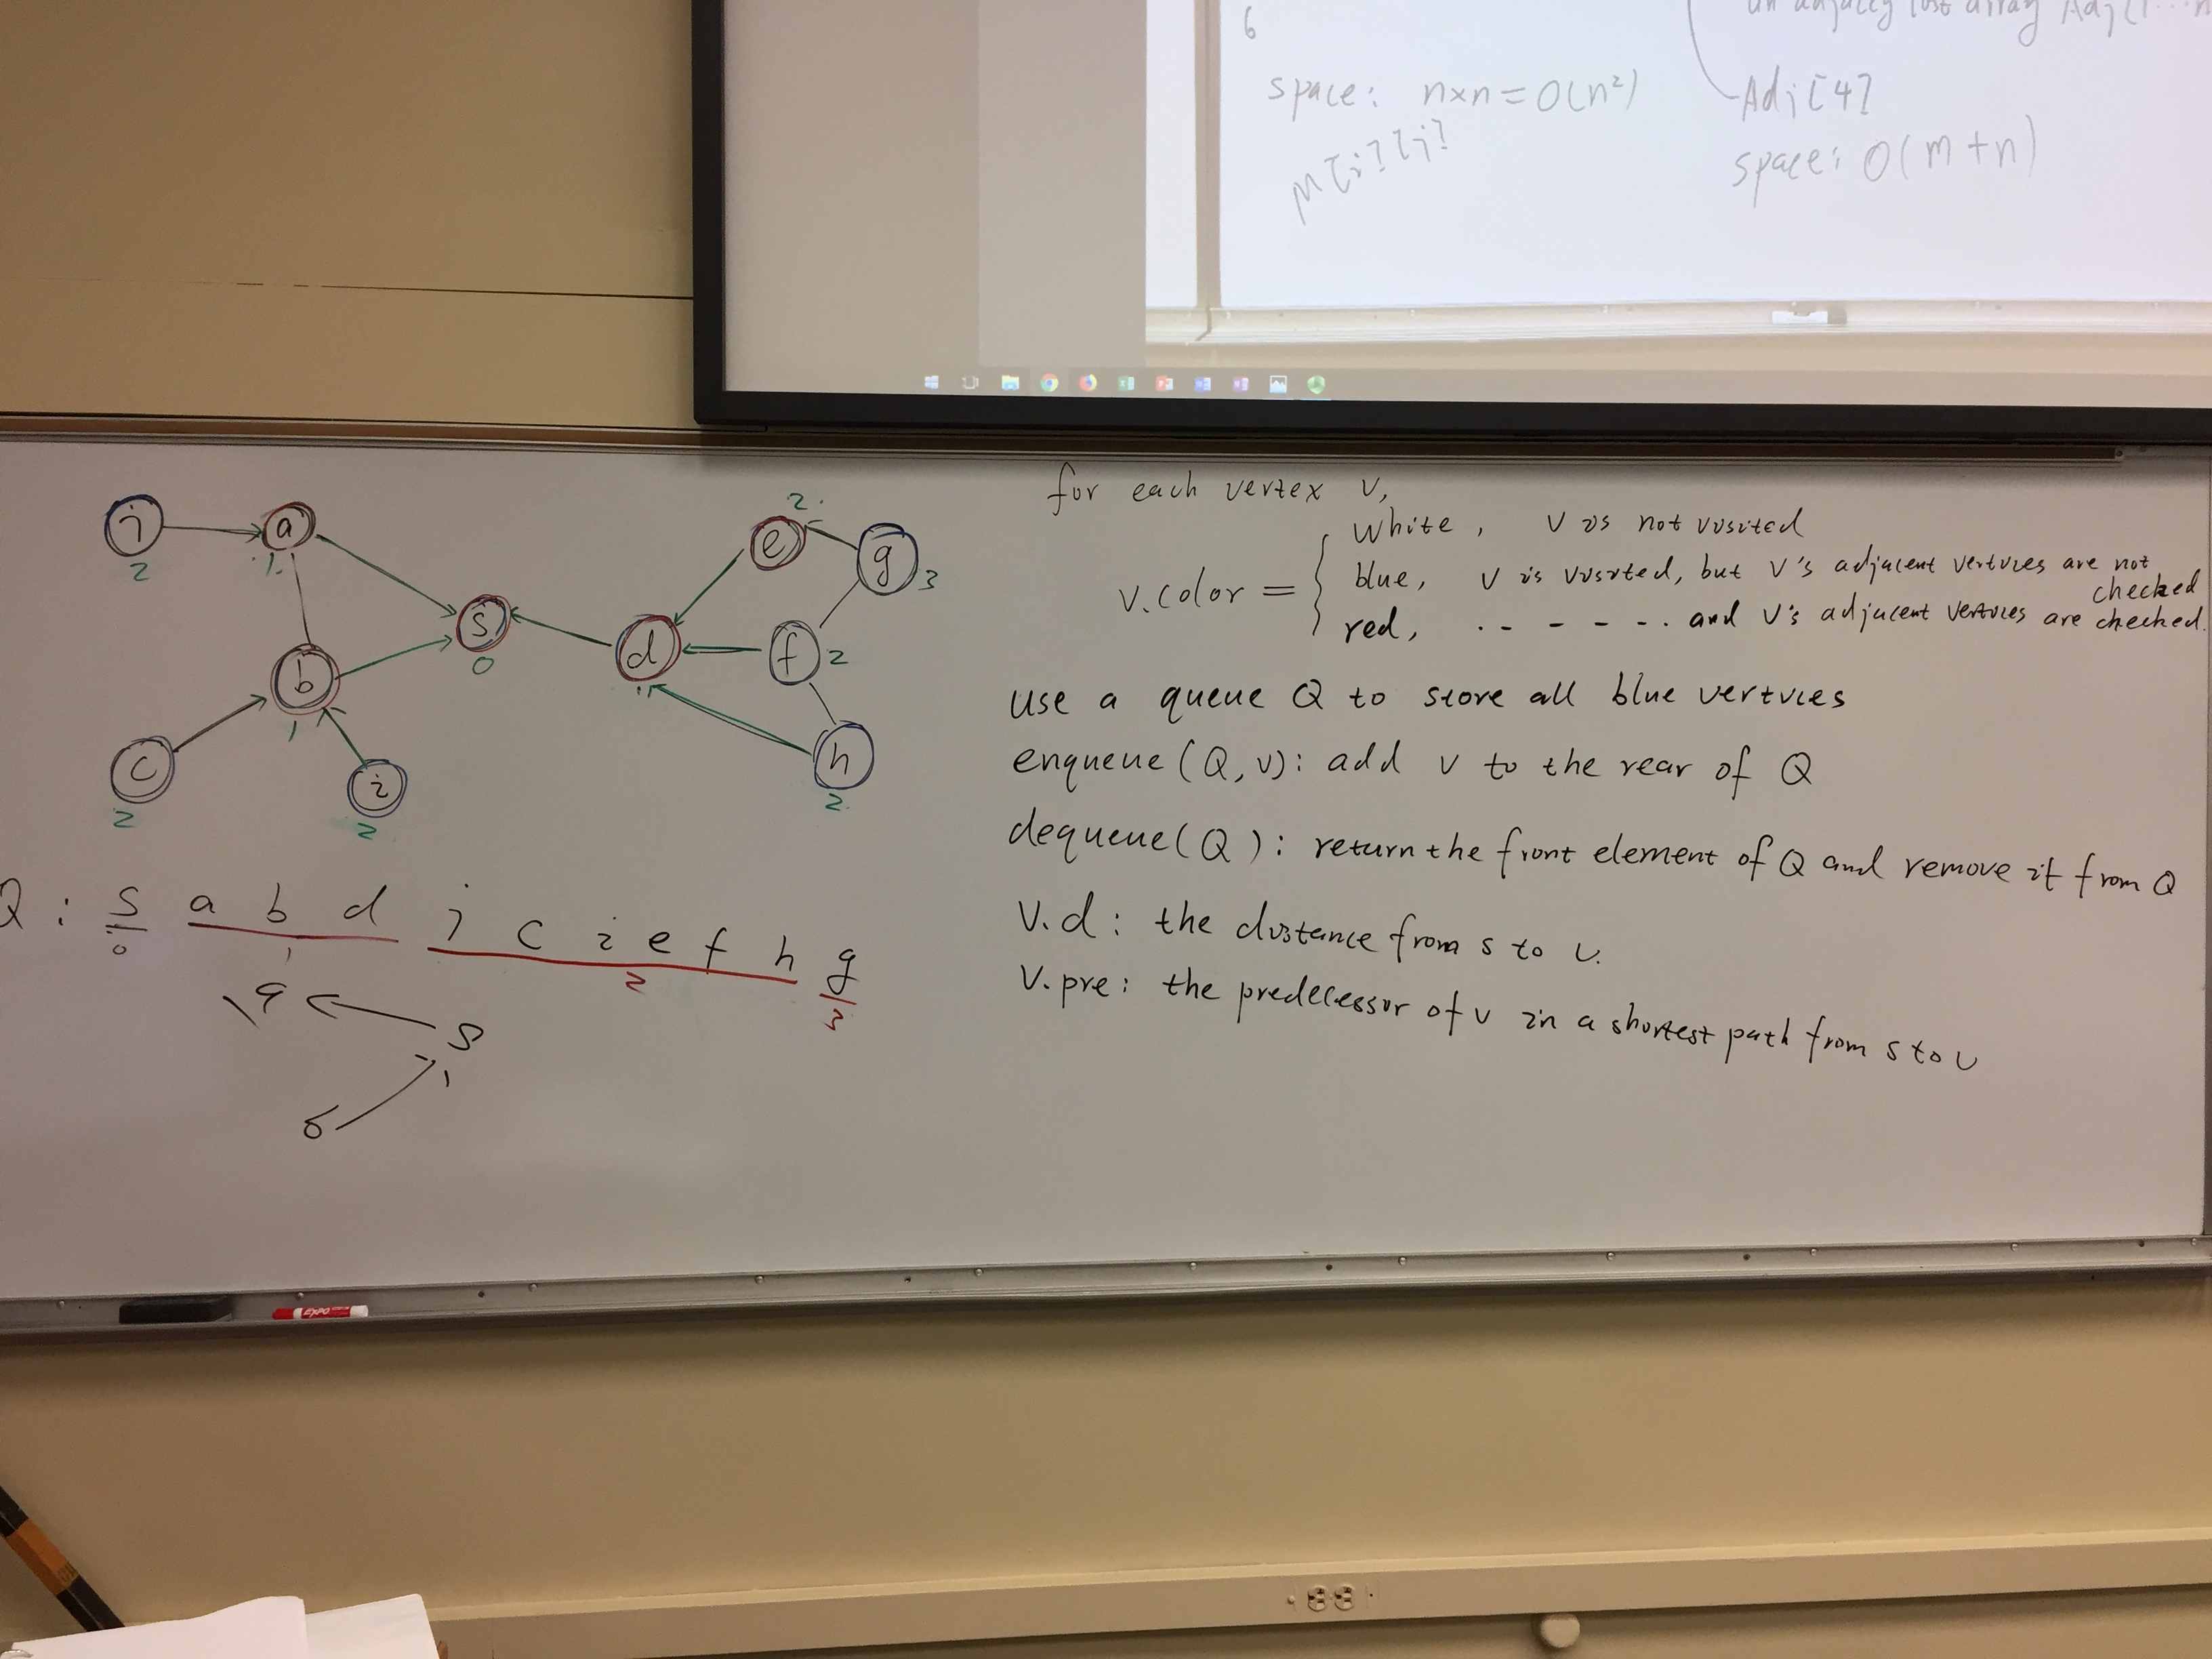 6
space: n×n = O(n²)
M[i][j]
Adj[4]
space: O(m+n)
j
2
a
1
s
0
b
1
c
2
i
2
d
1
e
2
f
2
g
3
h
2
Q: s a b d j c i e f h g
0 1 2 3
a
s
1
b
for each vertex v,
v.color =
white, v is not visited
blue, v is visited, but v's adjacent vertices are not checked
red, - - - - - - and v's adjacent vertices are checked.
use a queue Q to store all blue vertices
enqueue(Q, v): add v to the rear of Q
dequeue(Q): return the front element of Q and remove it from Q
v.d: the distance from s to v.
v.pre: the predecessor of v in a shortest path from s to v
EXPO